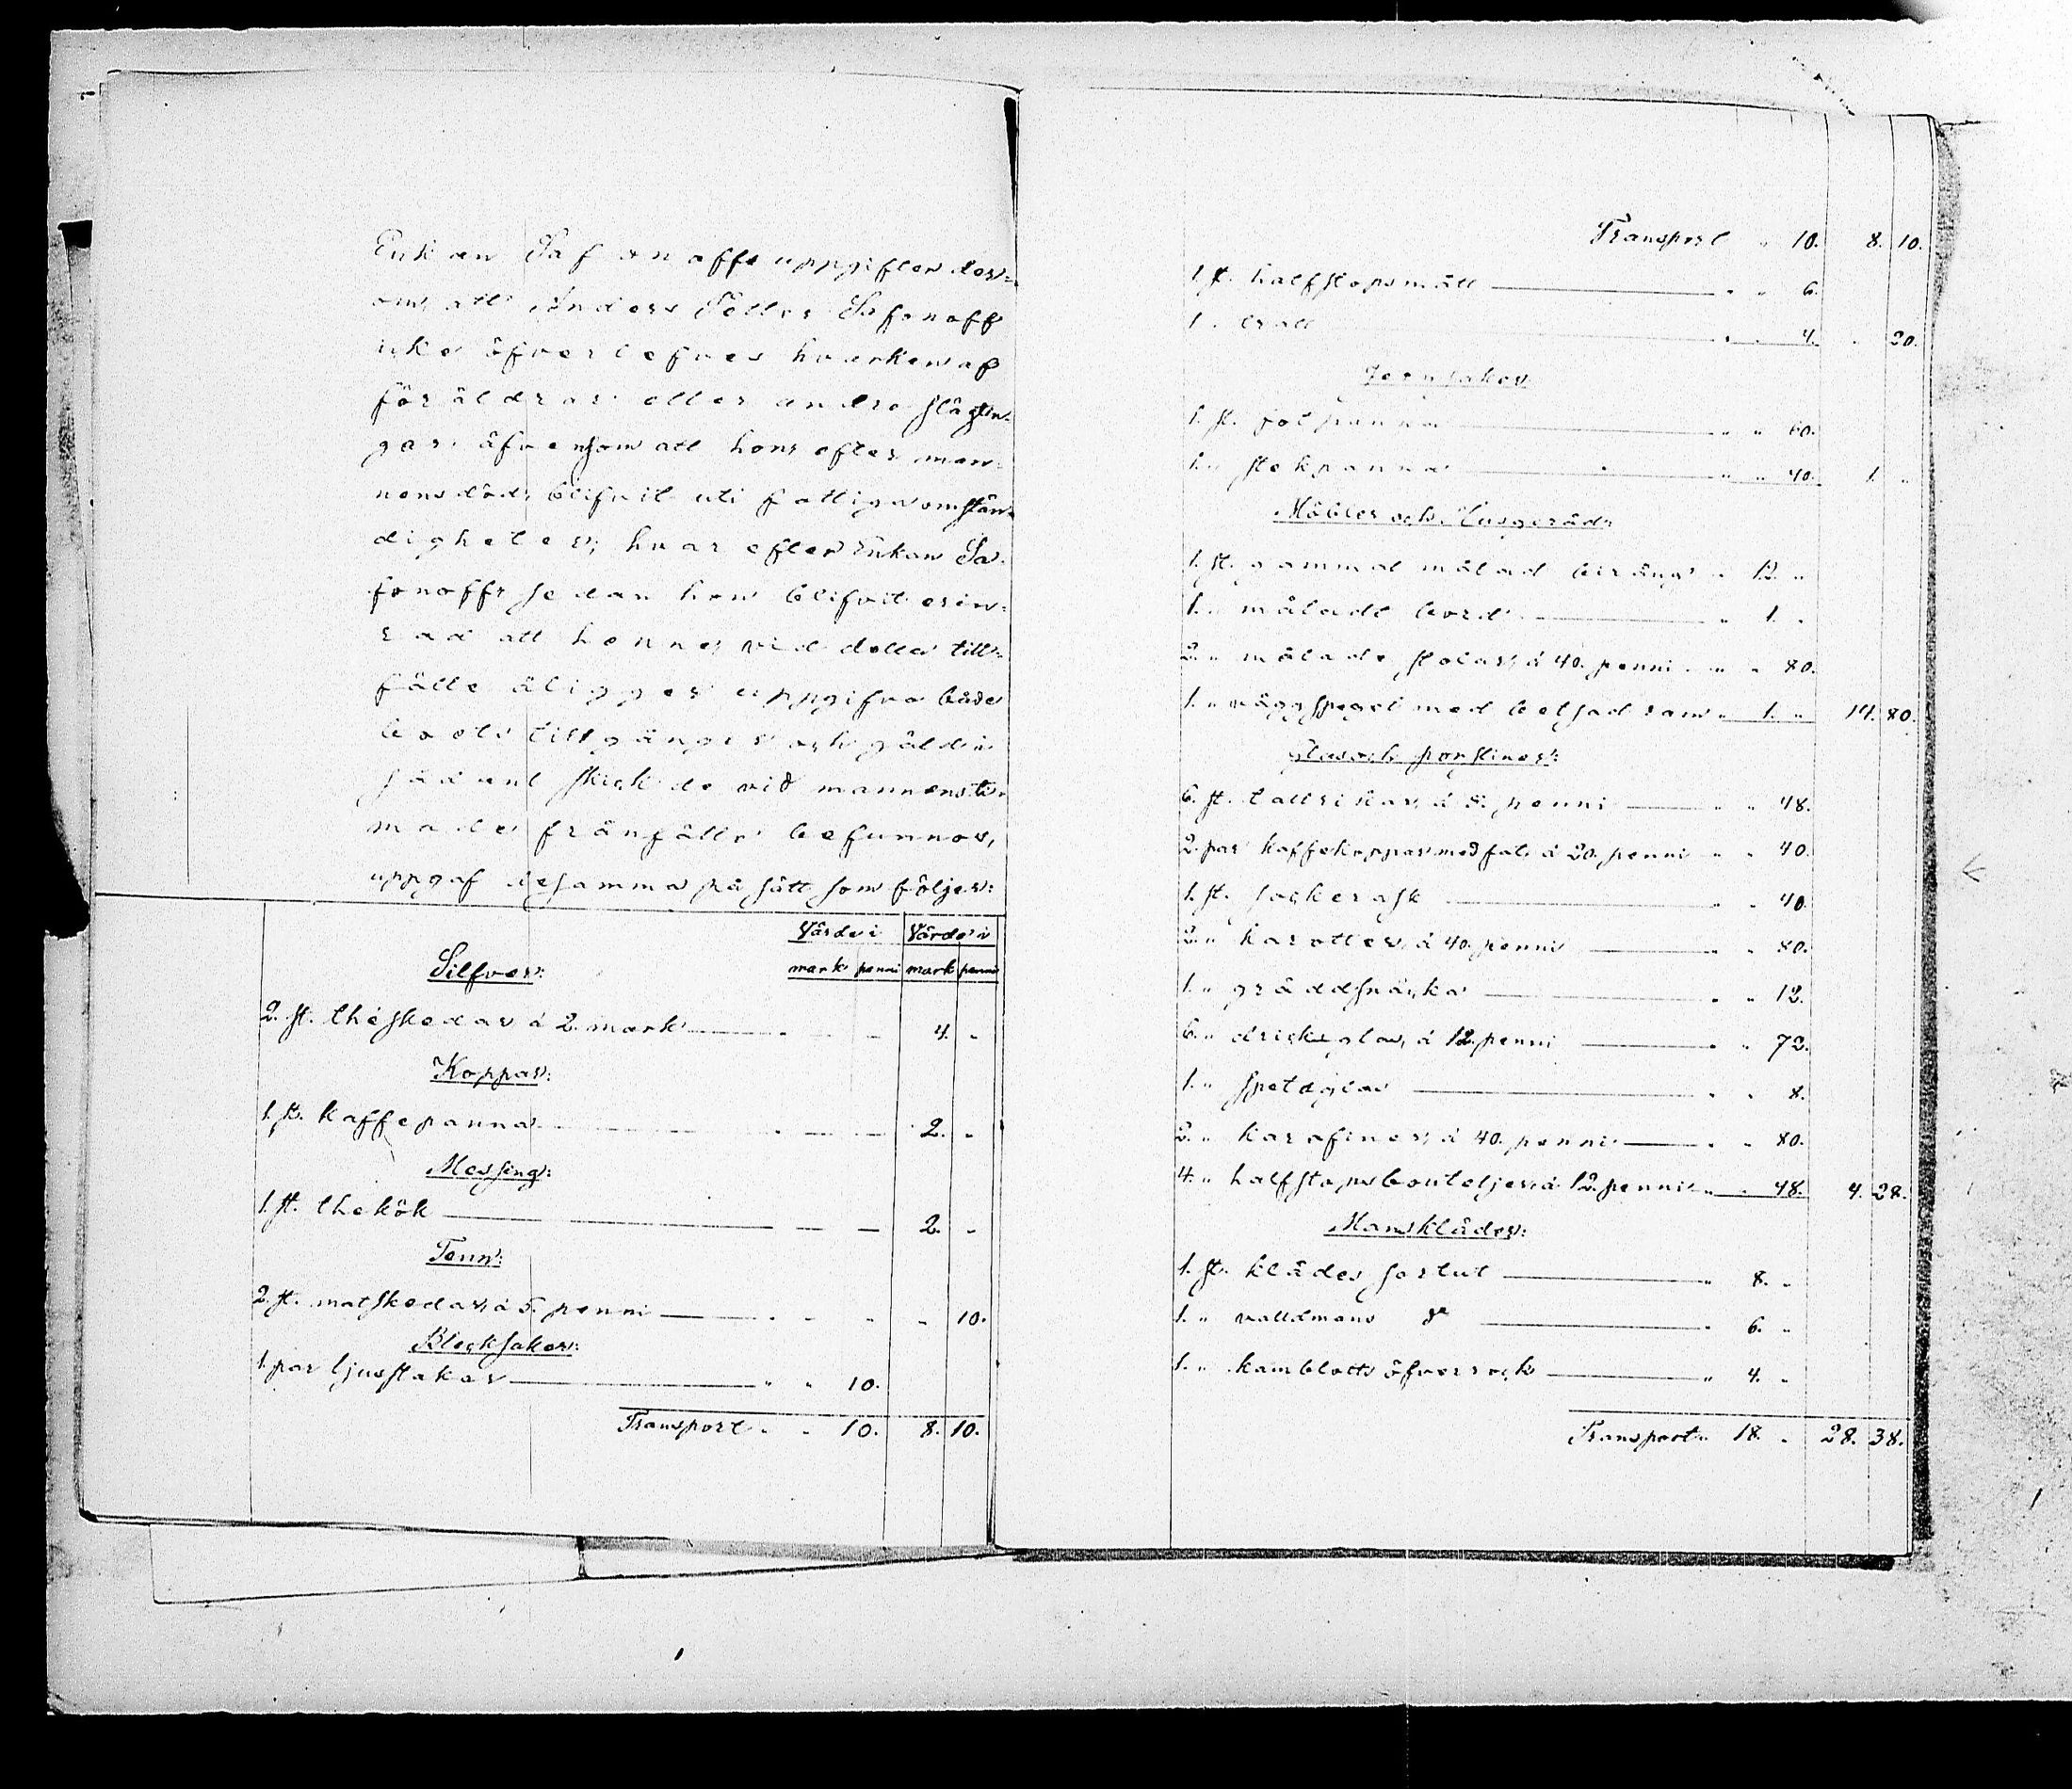 Enkan Safonoffs uppgifter der-
om, att Anders Petter Safonoff
icke öfverlefves hvarken af
föräldrar eller andra slägtin-
gar äfvensom att hon efter man-
nens död blifvit uti fattiga omstän-
digheter; hvarefter Enkan Sa-
fonoff, sedan hon blifvit erin-
rad att henne vid detta till-
fälle åligger uppgifva både
boets tillgångar och gäld i
sådant skick de vid mannens ti-
made frånfälle befunnos,
uppgaf desamma på sätt som följer:
Värde i Värde i
mark penni mark penni
Silfver:
2. st. théskedar á 2. mark 4. "
Koppar:
1. st. kaffepanna 2. "
Messing:
1. st. thekök 2. "
Tenn:
2. st. matskedar, á 5. penni " 10.
Bleck saker:
1. par ljusstakar " " 10.
Transport " " 10. 8. 10.
Transport " 10. 8. 10.
1. st. halfstopsmått " " 6.
1. " tratt " " 4. " 20.
Jern saker:
1. st. fotpanna " " 60.
1. " stekpanna " " 40. 1. "
Möbler och Husgeråd:
1. st. gammal målad biräng " 12. "
1. " måladt bord " 1. "
2. " målade stolar, á 40. penni " " 80.
1. " väggspegel med betsad ram " 1. " 14. 80.
Glas och porsliner:
6. st. tallrikar, á 8. penni " " 48.
2. par kaffekoppar med fat, á 20. penni " " 40.
1. st. sockerask " " 40.
2. " karotter, á 40. penni " " 80.
1. " gräddsnäcka " " 12.
6. " dricksglas, á 12. penni " " 72.
1. " spetsglas " " 8.
2. " karafiner, á 40. penni " " 80.
4. " halfstops bouteljer, á 12. penni " " 48. 4. 28.
Manskläder:
1. st. klädes sortut " 8. "
1. " valldmans do " 6. "
1. " kamblotts öfverrock " 4. "
Transport " 18. " 28. 38.